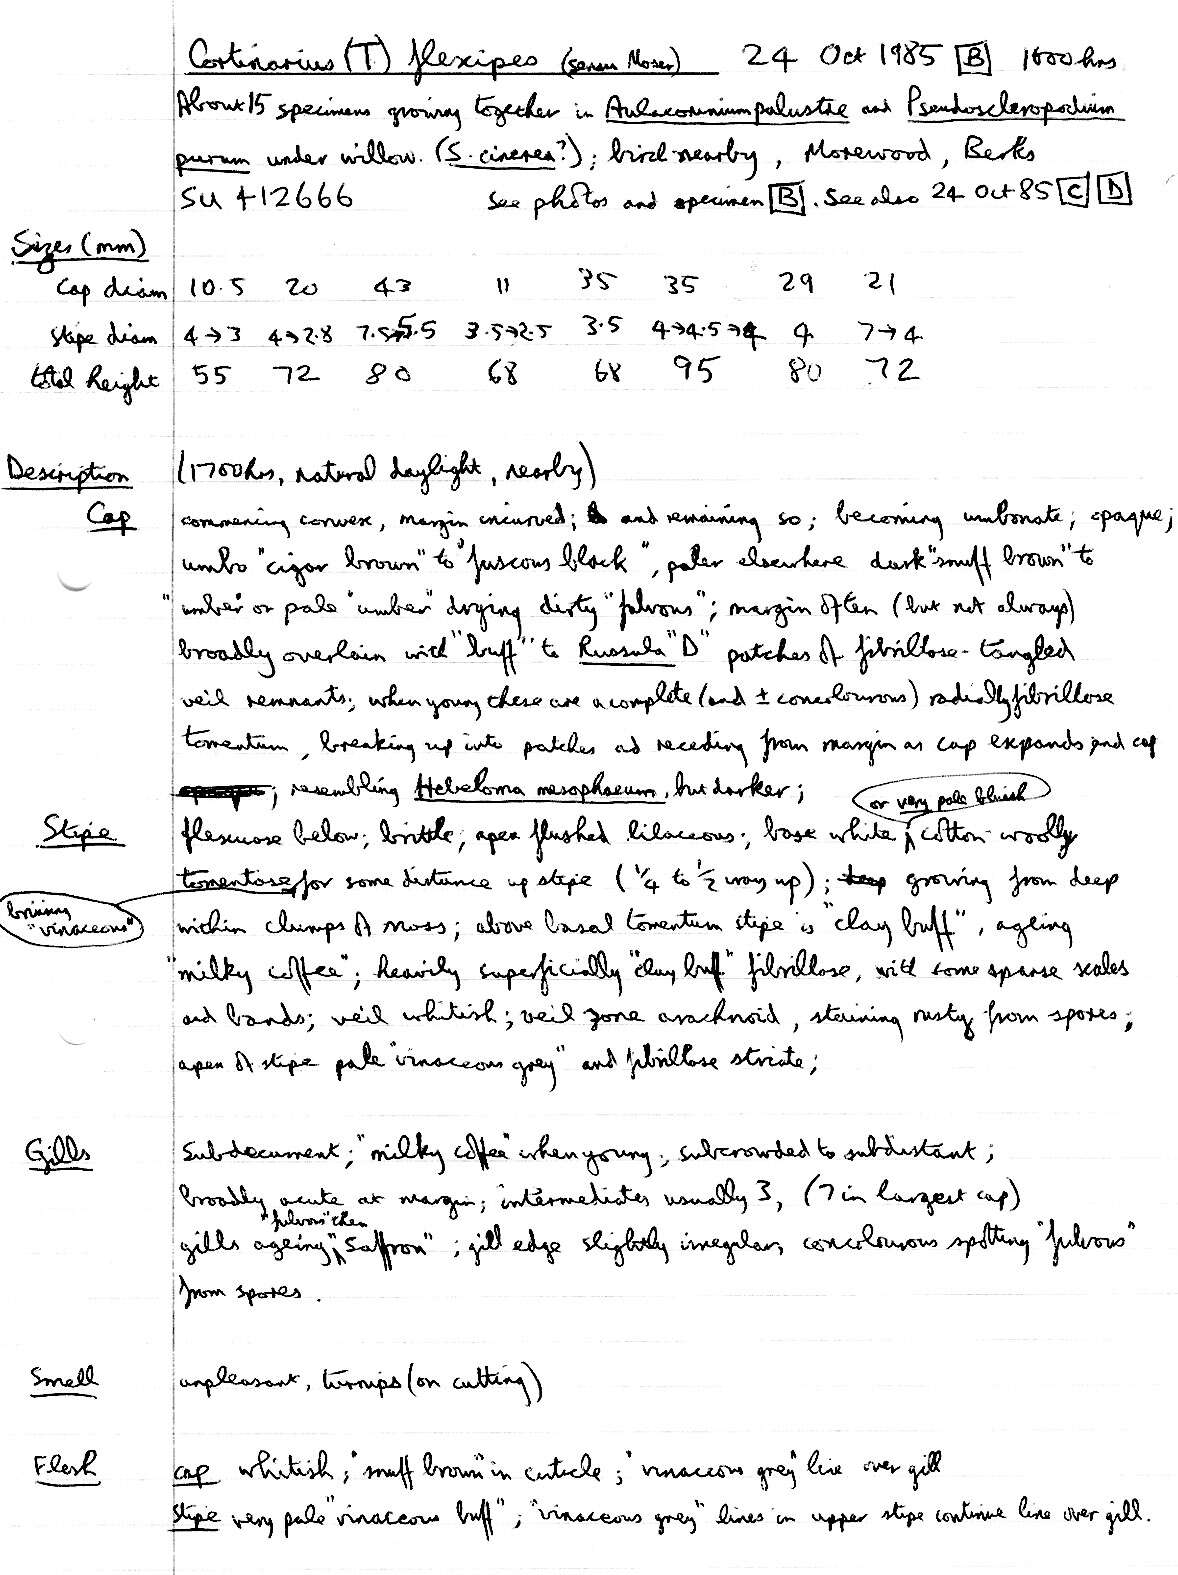 Cortinarius (T) flexipes (sensu Moser) 24 Oct 1985 [B] 1600hrs
About 15 specimens growing together in Aulacomnium palustre and Pseudoscleropodium
purum under willow. (S. cinerea?); birch nearby, Morewood, Berks
SU 412666 See photos and specimen [B]. See also 24 Oct 85 [C] [D]
Sizes (mm)
Cap diam 10.5 20 43 11 35 35 29 21
Stipe diam 4→3 4→2.8 7.5→5.5 3.5→2.5 3.5 4→4.5→4 4 7→4
total height 55 72 80 68 68 95 80 72
Description (1700hrs, natural daylight, nearby)
Cap commencing convex, margin incurved; and remaining so; becoming umbonate; opaque;
umbo "cigar brown" to "fuscous black", paler elsewhere dark "snuff brown" to
"umber" or pale "umber" drying dirty "fulvous"; margin often (but not always)
broadly overlain with "buff" to Russula "D" patches of fibrillose-tangled
veil remnants; when young these are a complete (and ± concolourous) radially fibrillose
tomentum, breaking up into patches and receding from margin as cap expands; and cap
; resembling Hebeloma mesophaeum, but darker; or very pale bluish
Stipe flexuose below; brittle; apex flushed lilaceous; base white, cotton-woolly
tomentose for some distance up stipe (1/4 to 1/2 way up); growing from deep
bruising "vinaceous"
within clumps of moss; above basal tomentum stipe is "clay buff", ageing
"milky coffee"; heavily superficially "clay buff" fibrillose, with some sparse scales
and bands; veil whitish; veil zone arachnoid, staining rusty from spores;
apex of stipe pale "vinaceous grey" and fibrillose striate;
Gills Subdecurrent; "milky coffee" when young; subcrowded to subdistant;
broadly acute at margin; intermediates usually 3, (7 in largest cap)
"fulvous" then
gills ageing "Saffron"; gill edge slightly irregular, concolourous spotting "fulvous"
from spores.
Smell unpleasant, turnips (on cutting)
Flesh cap whitish; "snuff brown" in cuticle; "vinaceous grey" line over gill
stipe very pale "vinaceous buff"; "vinaceous grey" lines in upper stipe continue line over gill.